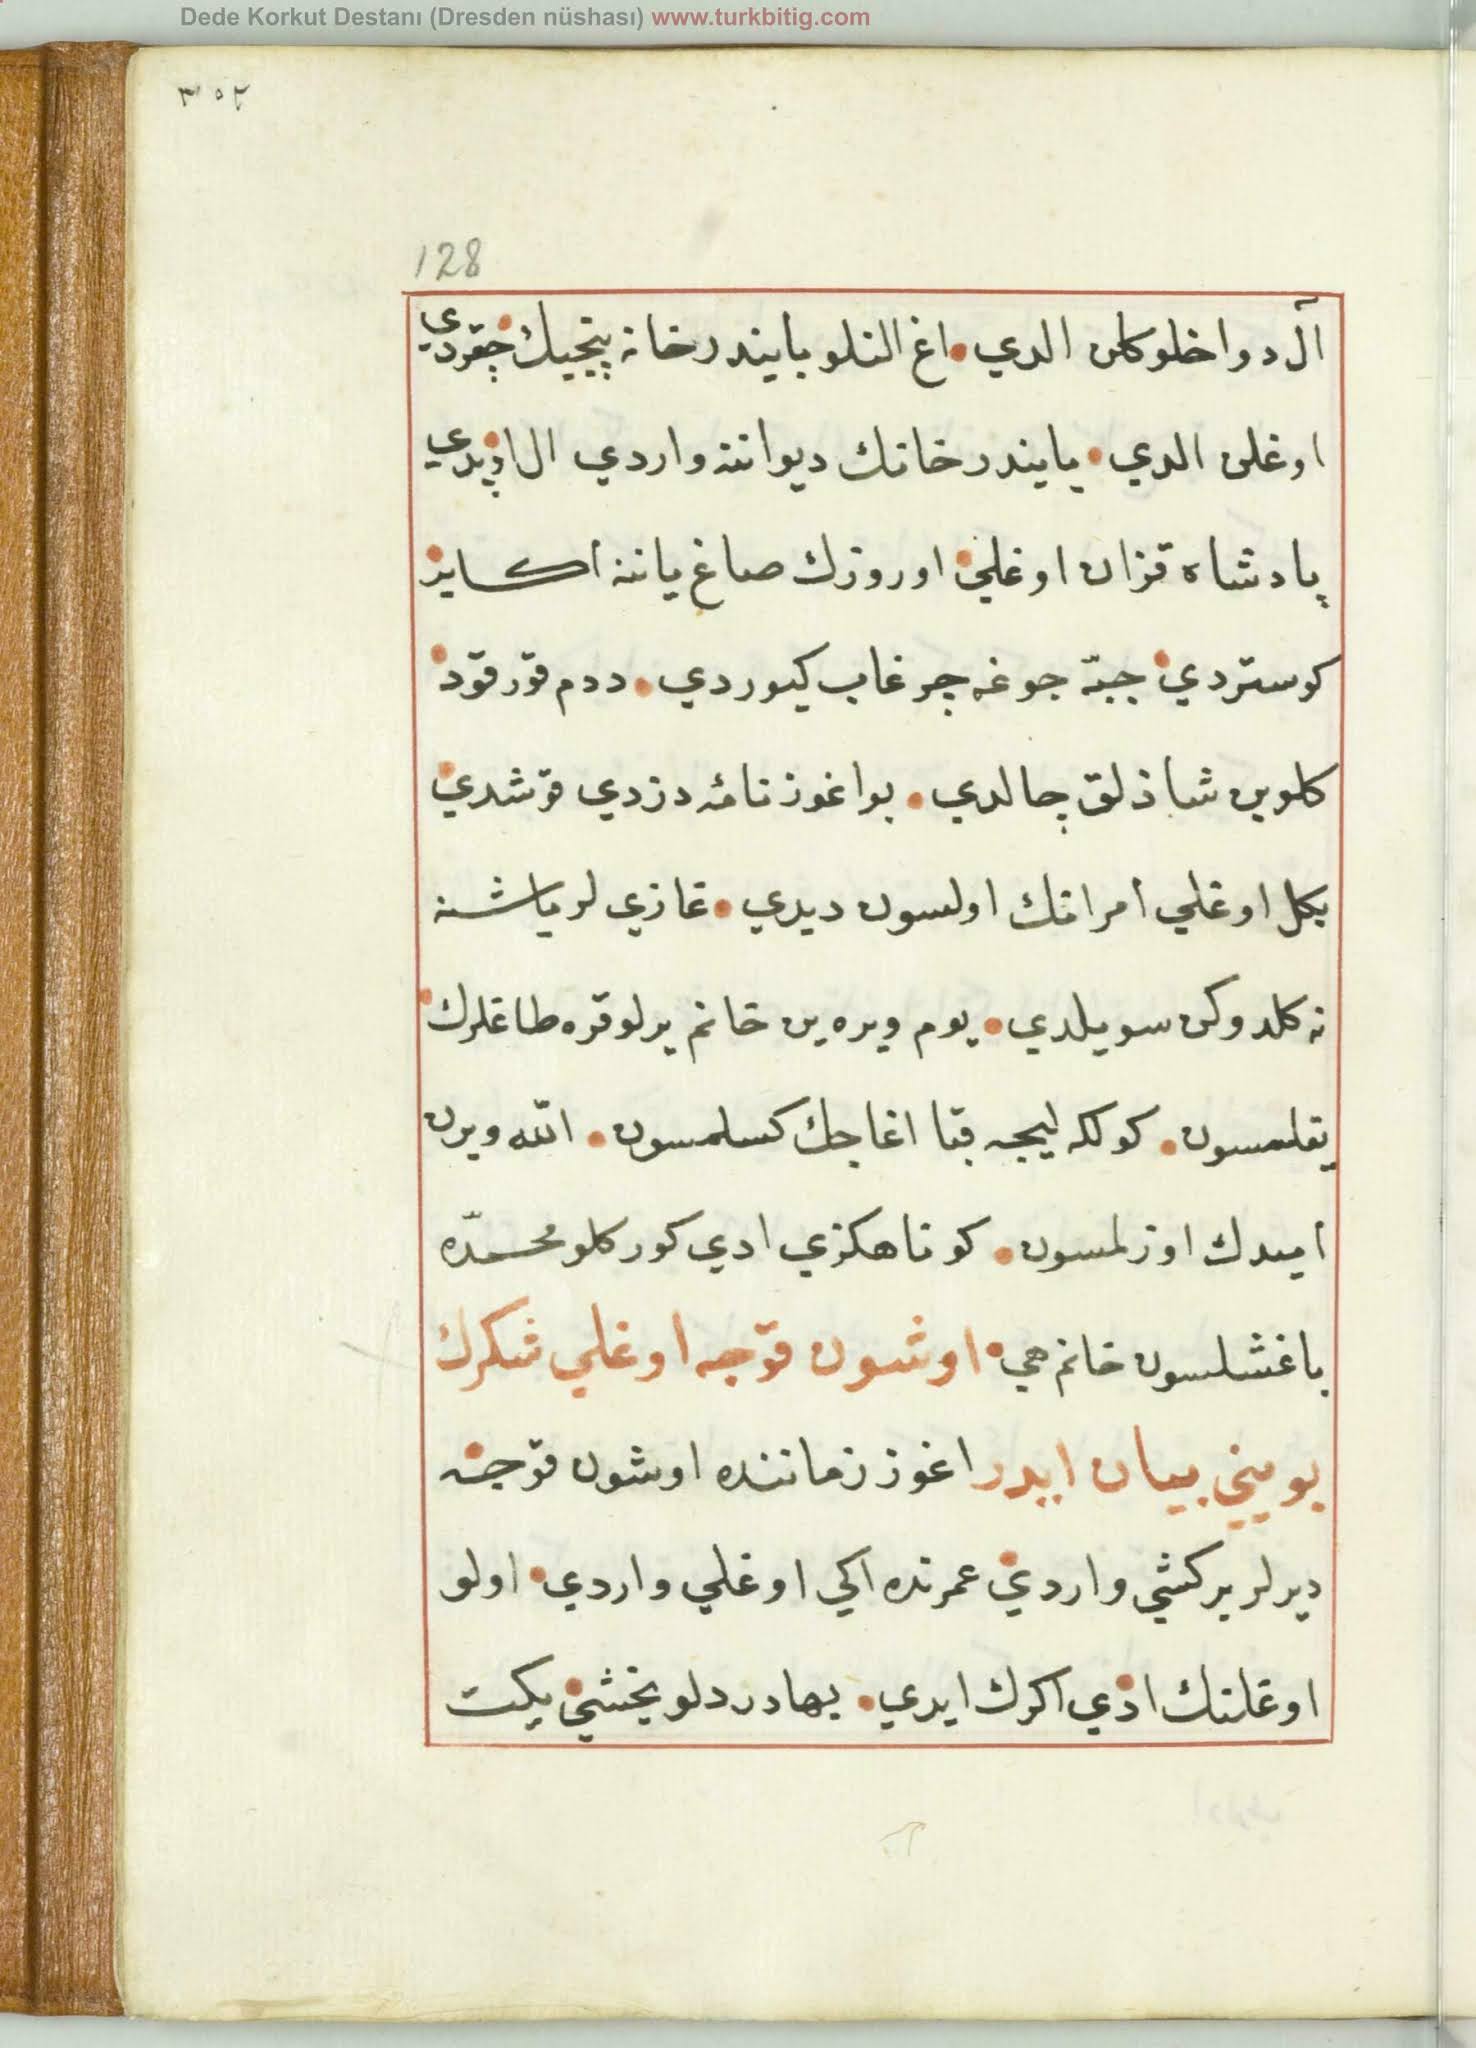 Dede Korkut Destanı (Dresden nüshası) www.turkbitig.com
٢٥٣
128
آل دواخلو كلن الدي اغ النلو بايندر خانه پنجيك چقردي
اوغلن الدي بايندر خانك ديواننه واردي ال اوپدي
پادشاه قزان اوغلي اوروزك صاغ ياننه
كوستردي جبّه جوغه چرغاب كيوردي ددم قورقود
كلوبن شاذلق چالدي بو اغوزنامه دزدي قوشدي
بكل اوغلي امرانك اولسون ديدي غازي لر باشنه
نه كلدوكن سويلدي يوم ويره ين خانم يرلو قره طاغلرك
يقلمسون كولكه ليجه قبا اغاجك كسلمسون الله ويرن
اميدك اوزلمسون كوناهكزي ادي كوركلو محمّده
باغشلسون خانم هي اوشون قوجه اوغلي سكرك
بويني بيان ايدر اغوز زماننده اوشون قوجه
ديرلر بر كشي واردي عمرنده اكي اوغلي واردي اولو
اوغلنك اذي اكرك ايدي بهادر دلو يخشي يكت